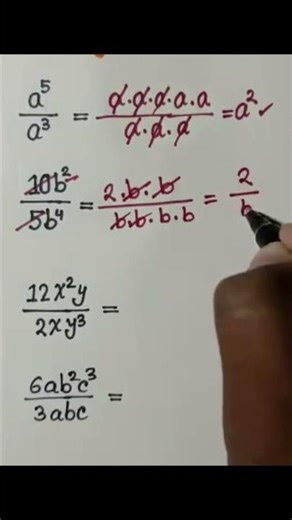 a⁵/a³ = a·a·a·a·a/a·a·a = a² ✓
10b²/5b⁴ = 2·b·b/b·b·b·b = 2/b
12x²y/2xy³ =
6ab²c³/3abc =